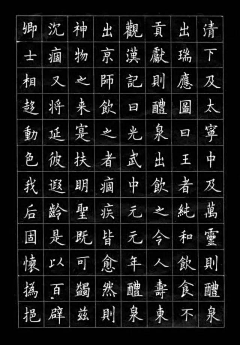 清下及太寧中及萬靈則醴泉
出瑞應圖曰王者純和飲食不
貢獻則醴泉出飲之令人壽東
觀漢記曰光武中元元年醴泉
出京師飲之者痼疾皆愈然則
神物之来寔扶明聖既可蠲兹
沉痼又将延彼遐齡是以百辟
卿士相趍動色我后固懷撝挹